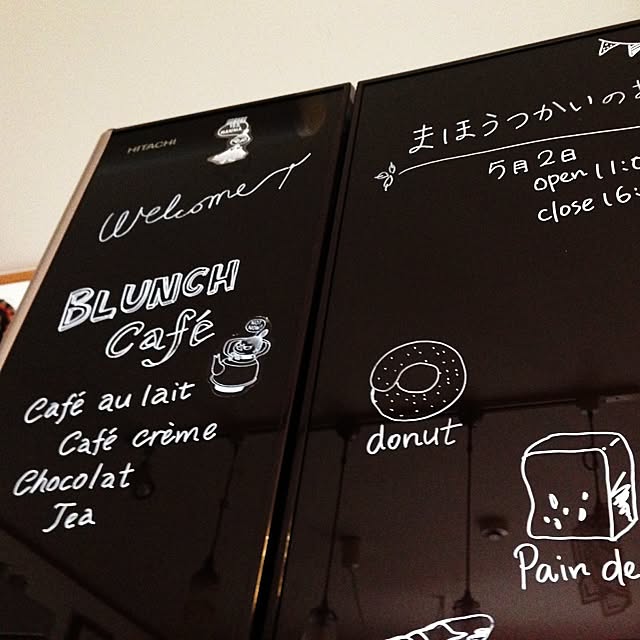 HITACHI
Welcome
BLUNCH
Café
Café au lait
Café crème
Chocolat
Tea
まほうつかいの
5月2日
open 11:
close 16:
donut
Pain de